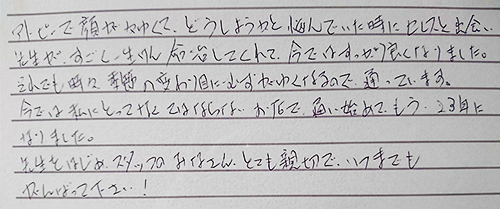 アトピーで顔がかゆくて、どうしようかと悩んでいた時にセレスと出会い
先生が、すごく一生けん命治してくれて、今ではすっかり良くなりました。
それでも時々季節の変わり目にむずがゆくなるので、通っています。
今では私にとってなくてはならないお店で、通い始めてもう、23年に
なりました。
先生をはじめ、スタッフのみなさん、とても親切で、いつまでも
がんばって下さい!